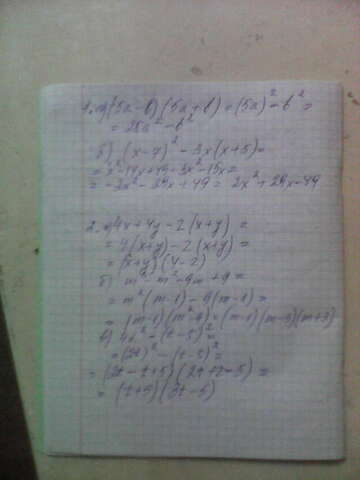 1. а) (5a-b)(5a+b) = (5a)² - b² =
= 25a² - b²
б) (x-7)² - 3x(x+5) =
= x² - 14x + 49 - 3x² - 15x =
= -2x² - 29x + 49 = 2x² + 29x - 49
2. а) 4x + 4y - 2(x+y) =
= 4(x+y) - 2(x+y) =
= (x+y)(4-2)
б) m³ - m² - 9m + 9 =
= m²(m-1) - 9(m-1) =
= (m-1)(m²-9) = (m-1)(m-3)(m+3)
в) 4t² - (t-5)² =
= (2t)² - (t-5)² =
= (2t-t+5)(2t+t-5) =
= (t+5)(3t-5)